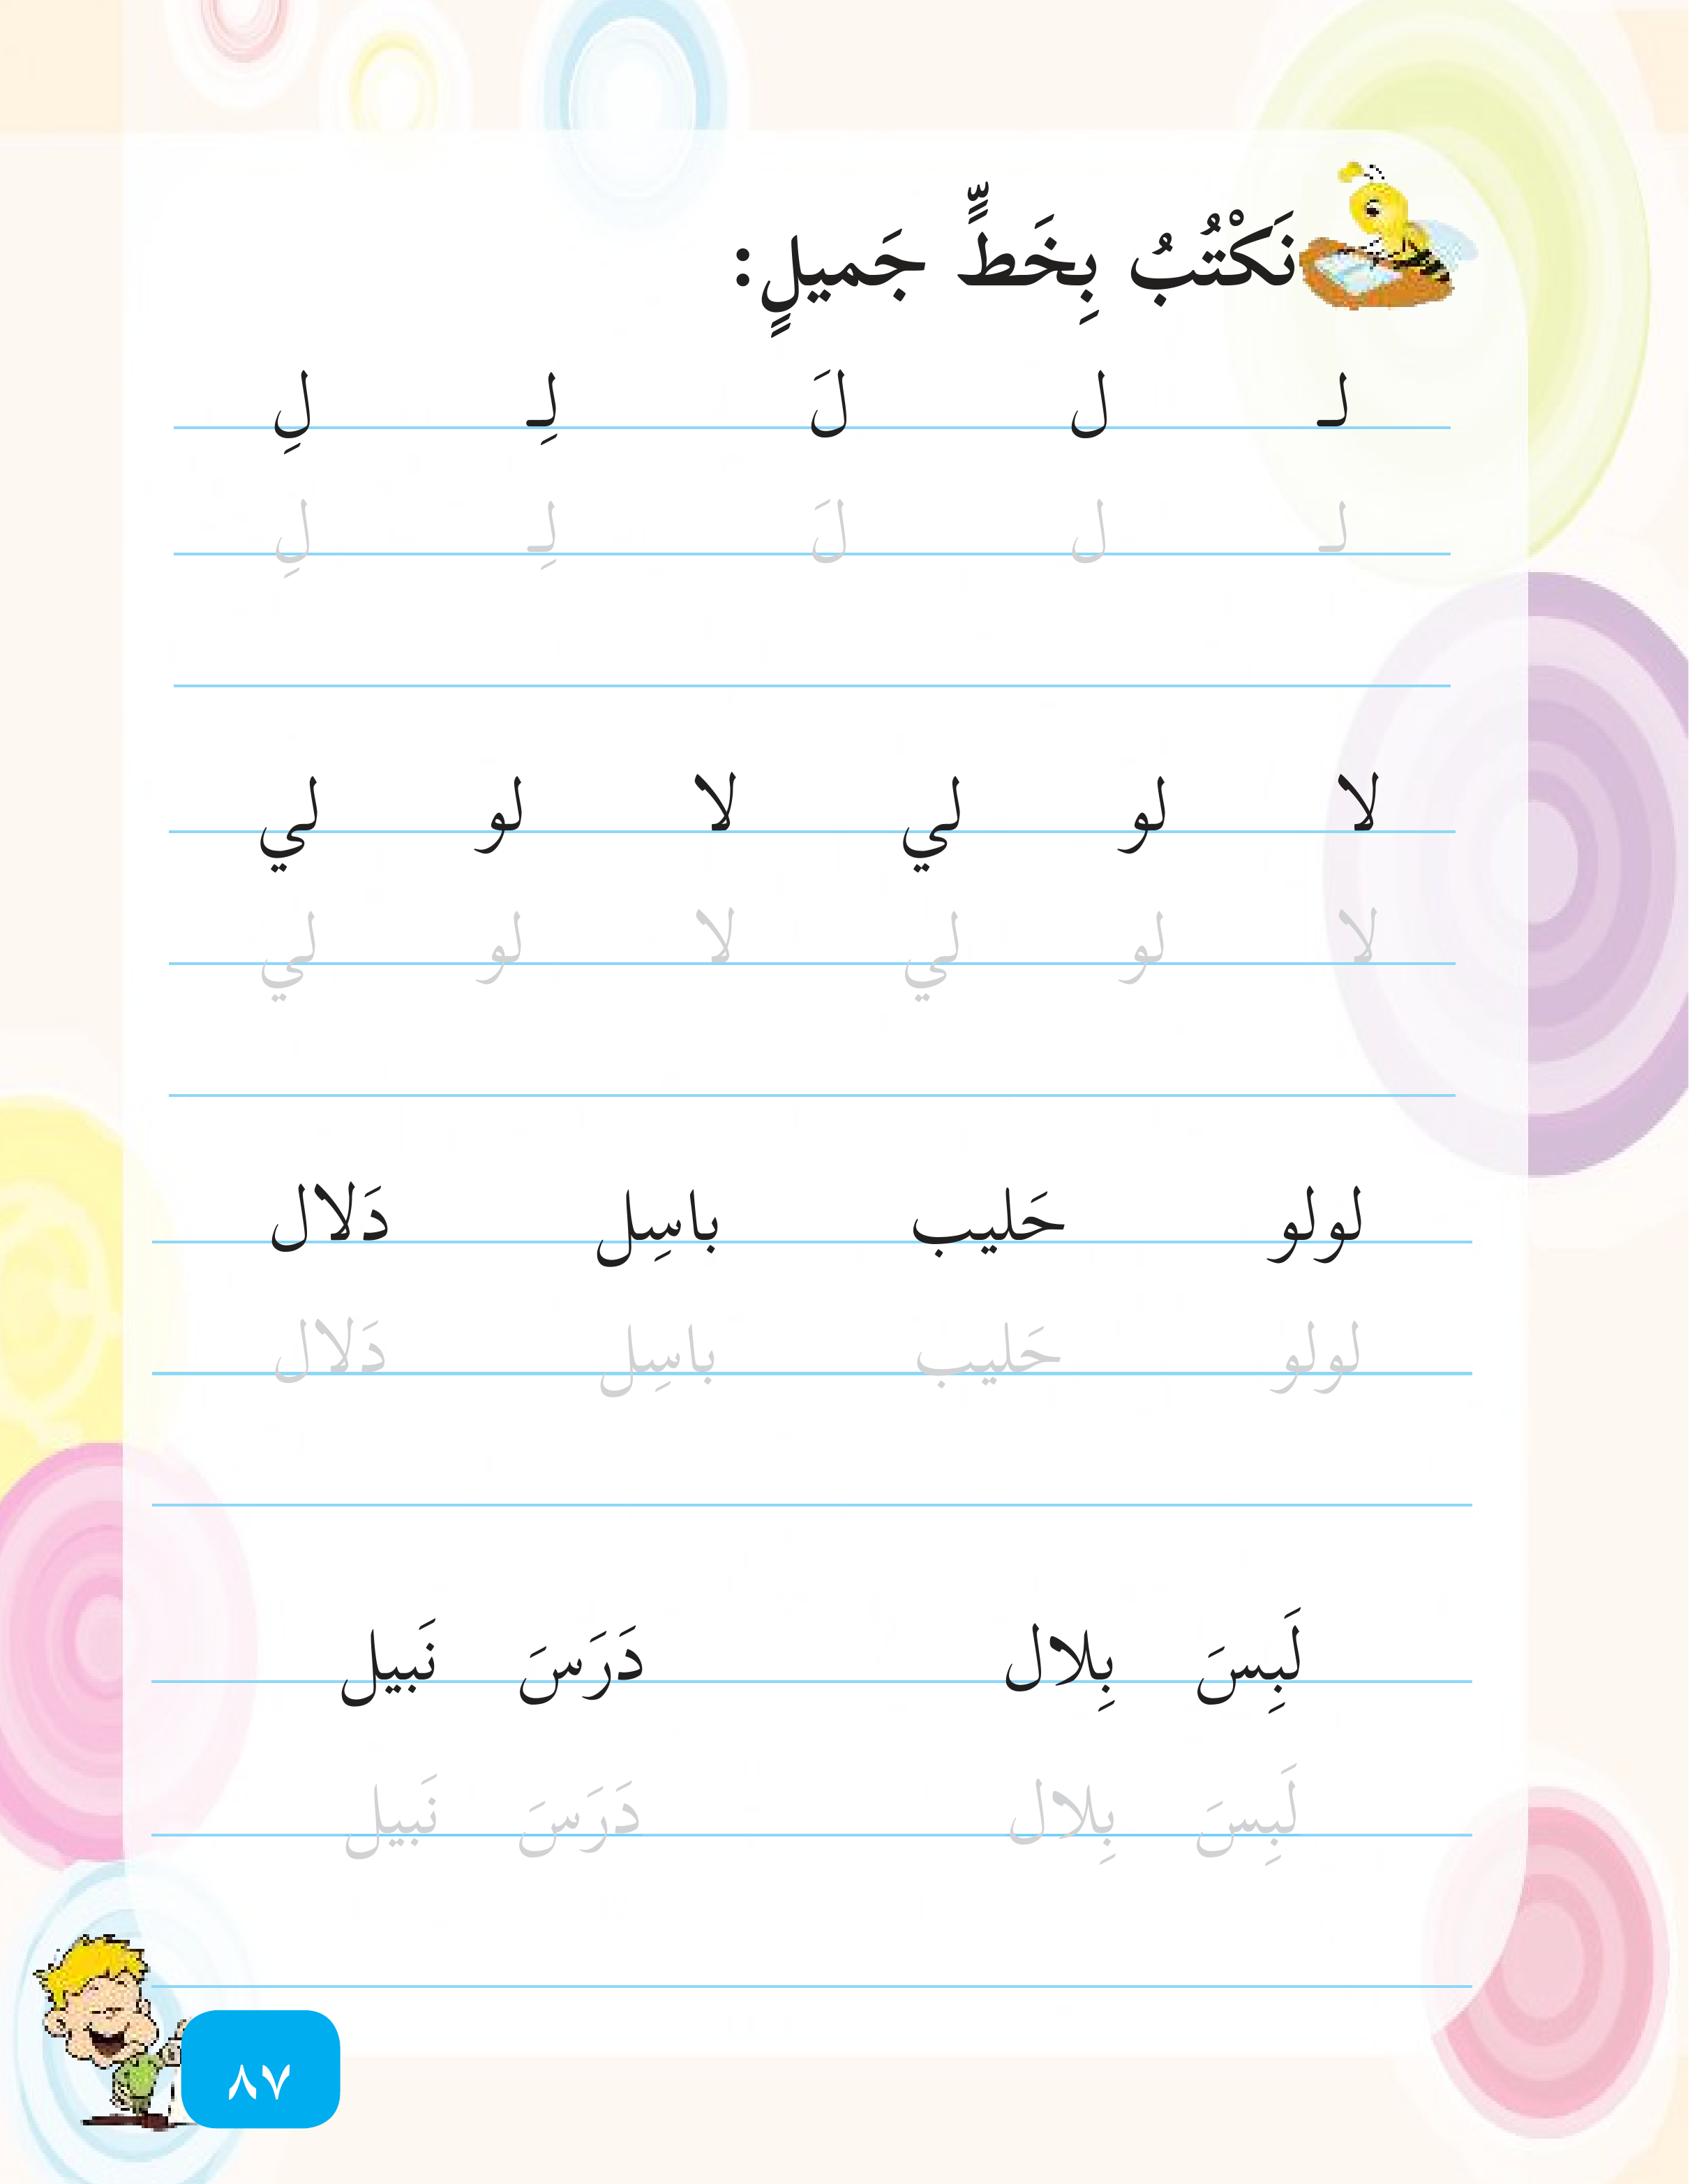 نَكْتُبُ بِخَطٍّ جَميلٍ:
لـ ل لَ لِـ لِ
لـ ل لَ لِـ لِ
لا لو لي لا لو لي
لا لو لي لا لو لي
لولو حَليب باسِل دَلال
لولو حَليب باسِل دَلال
لَبِسَ بِلال دَرَسَ نَبيل
لَبِسَ بِلال دَرَسَ نَبيل
٨٧